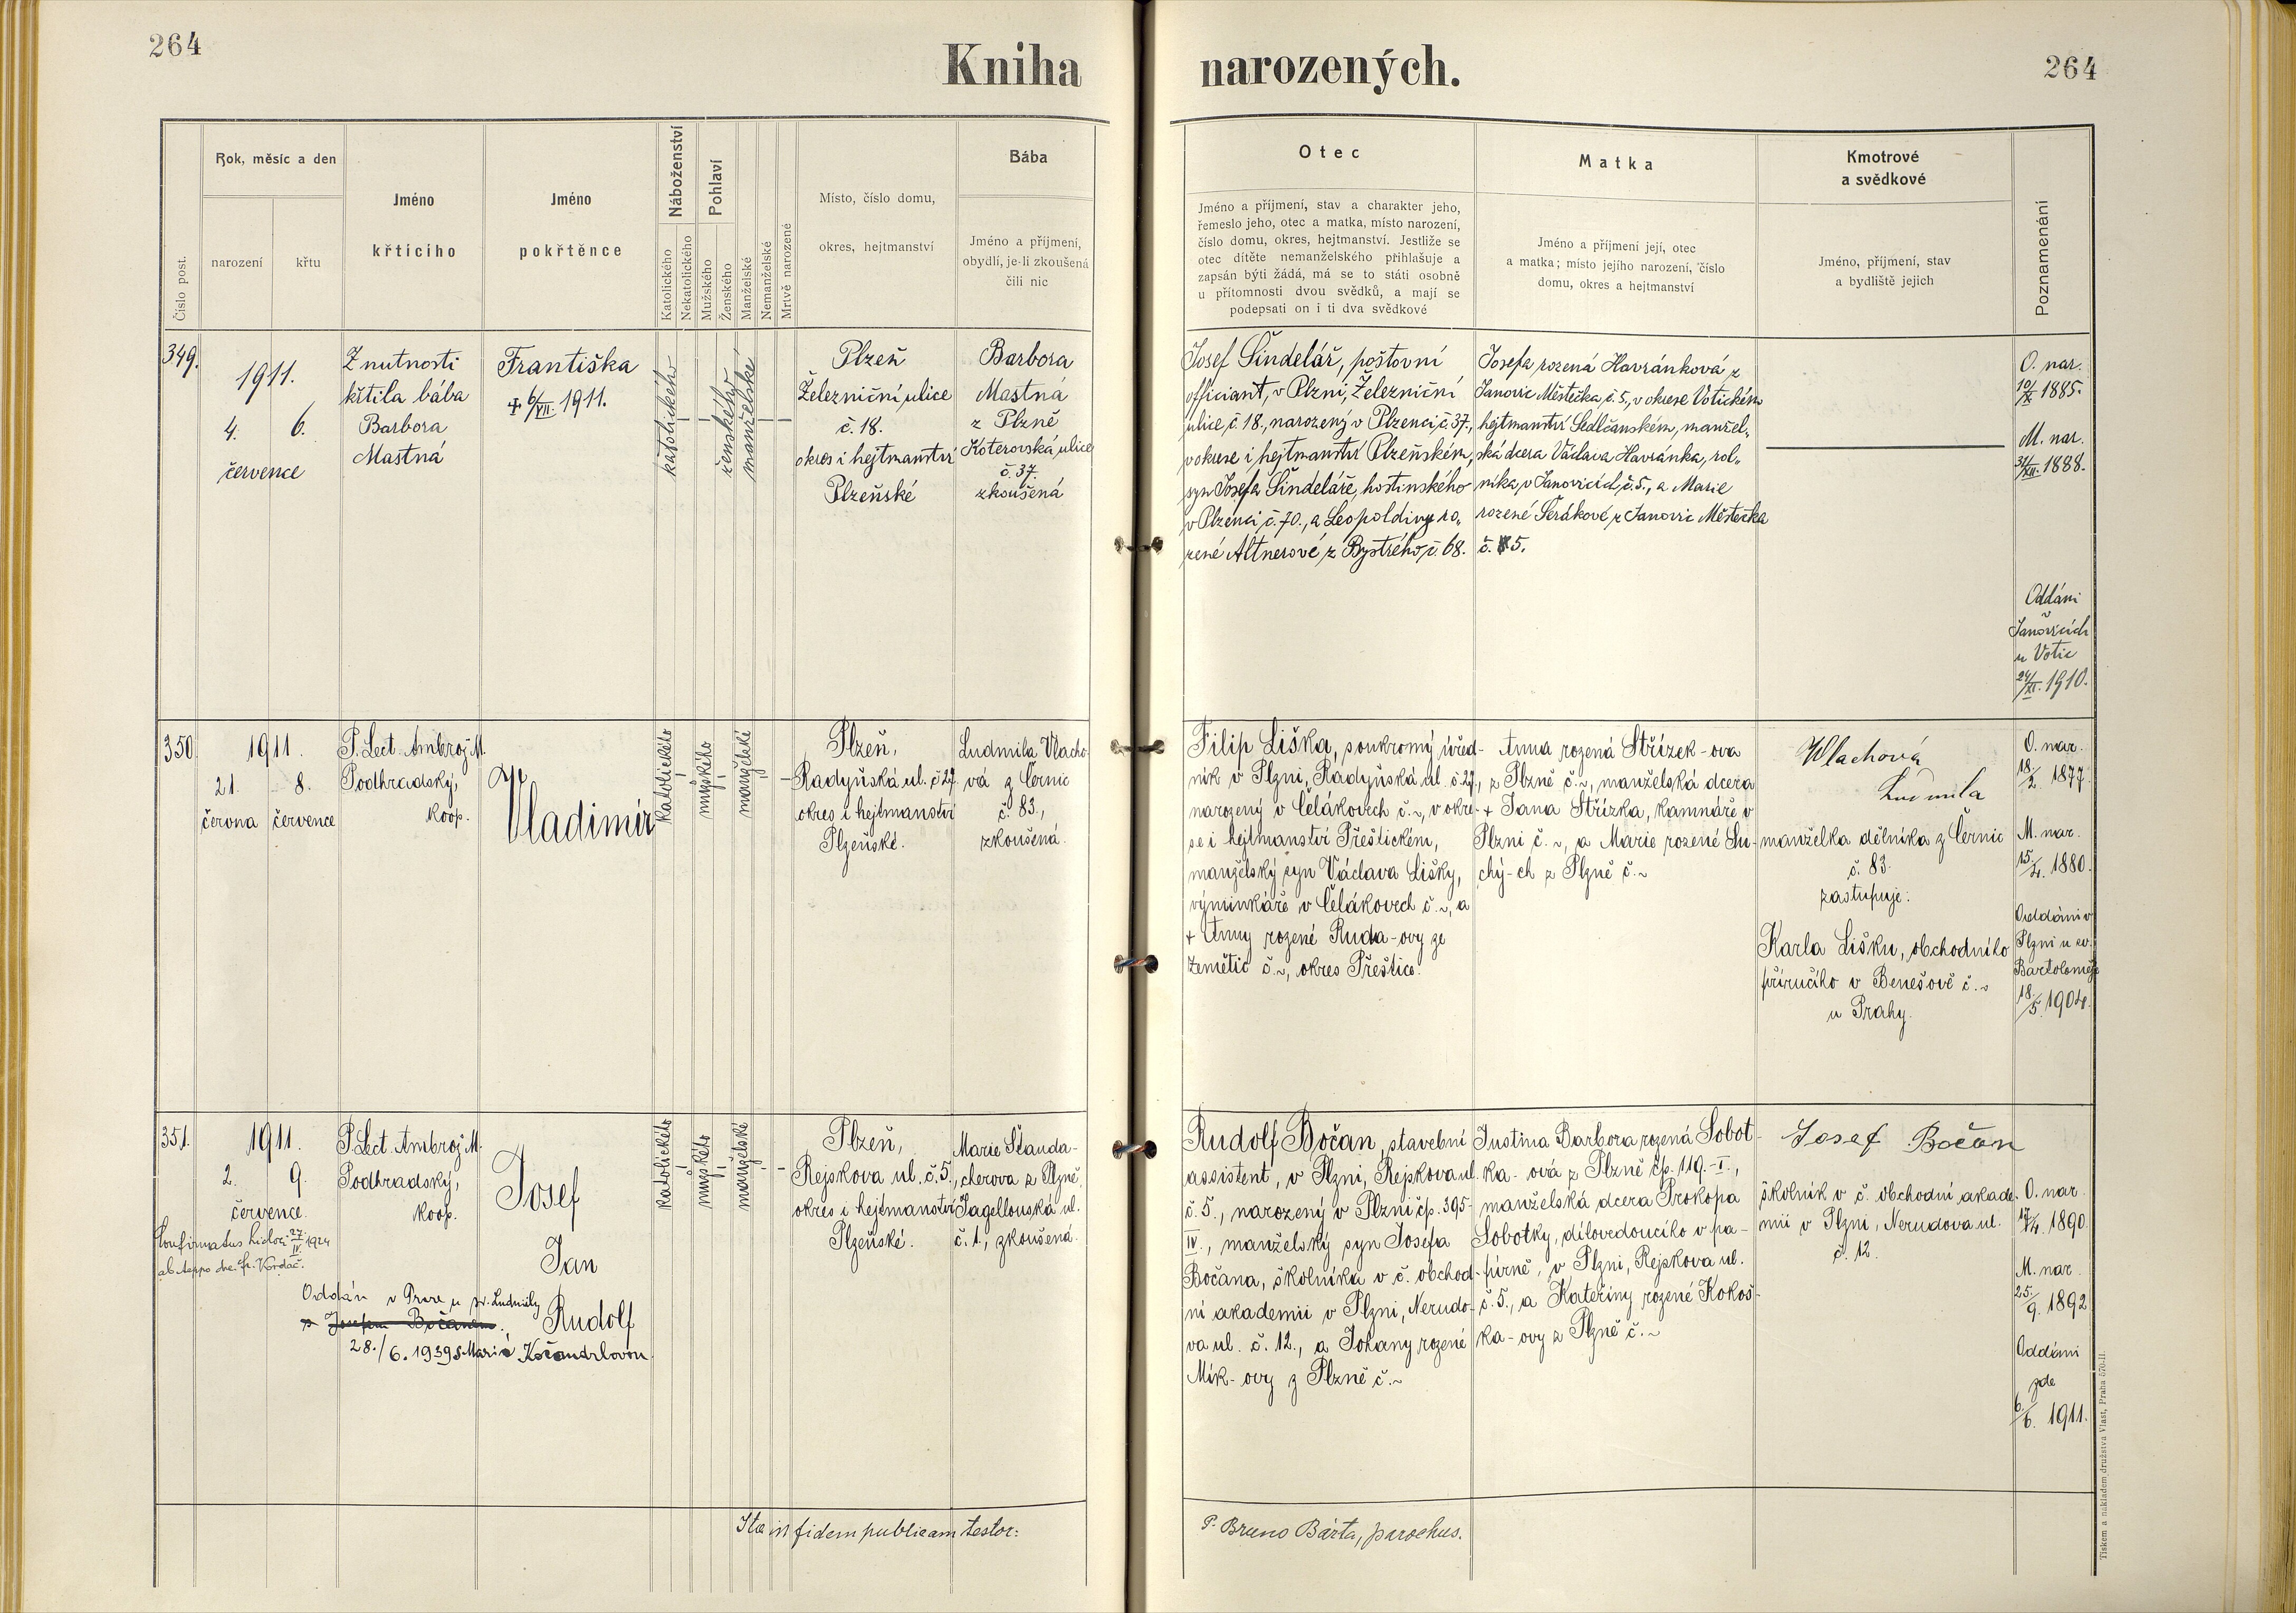 264
Kniha narozených.
264
Číslo post.
Rok, měsíc a den
narození
křtu
Jméno
křtícího
Jméno
pokřtěnce
Náboženství
Katolického
Nekatolického
Pohlaví
Mužského
Ženského
Manželské
Nemanželské
Mrtvě narozené
Místo, číslo domu,
okres, hejtmanství
Bába
Jméno a příjmení,
obydlí, je-li zkoušená
čili nic
Otec
Jméno a příjmení, stav a charakter jeho,
řemeslo jeho, otec a matka, místo narození,
číslo domu, okres, hejtmanství. Jestliže se
otec dítěte nemanželského přihlašuje a
zapsán býti žádá, má se to státi osobně
u přítomnosti dvou svědků, a mají se
podepsati on i ti dva svědkové
Matka
Jméno a příjmení její, otec
a matka; místo jejího narození, číslo
domu, okres a hejtmanství
Kmotrové
a svědkové
Jméno, příjmení, stav
a bydliště jejich
Poznamenání
349.
1911.
4. 6.
července
Z nutnosti
křtila bába
Barbora
Mastná
Františka
+ 6/VII. 1911.
katolického
ženského
manželské
Plzeň
Železniční ulice
č. 18.
okres i hejtmanství
Plzeňské
Barbora
Mastná
z Plzně
Koterovská ulice
č. 37.
zkoušená
Josef Šindelář, poštovní
officiant, v Plzni, Železniční
ulice, č. 18., narozený v Plzenci č. 37.,
v okrese i hejtmanství Plzeňském,
syn Josefa Šindeláře, hostinského
v Plzenci, č. 70., a Leopoldiny ro„
zené Altnerové z Bystrého, č. 68.
Josefa rozená Havránková z
Janovic Městečka, č. 5., v okrese Votickém
hejtmanství Sedlčanském, manžel„
ská dcera Václava Havránka, rol„
níka, v Janovicích, č. 5., a Marie
rozené Šerákové z Janovic Městečka
č. 5.
O. nar.
10/X. 1885.
M. nar.
31/XII. 1888.
Oddáni
v
Janovicích
u Votic
24/XI. 1910.
350
1911.
21. 8.
června července
P. Lect. Ambrož M.
Podhradský,
koop.
Vladimír
katolického
mužského
manželské
Plzeň,
Radyňská ul. č. 27
okres i hejtmanství
Plzeňské.
Ludmila Vlacho
vá z Černic
č. 83.,
zkoušená.
Filip Liška, soukromý úřed-
ník v Plzni, Radyňská ul. č. 27,
narozený v Čelákovech č. ~, v okre-
se i hejtmanství Přeštickém,
manželský syn Václava Lišky,
výminkáře v Čelákovech č. ~, a
+ Anny rozené Ruda-ovy ze
Žemětic č. ~, okres Přeštice.
Anna rozená Střízek-ova
z Plzně č. ~, manželská dcera
+ Jana Střízka, kamnáře v
Plzni č. ~, a Marie rozené Su-
chý-ch z Plzně č. ~
Wlachová
Ludmila
manželka dělníka z Černic
č. 83.
zastupuje:
Karla Lišku, obchodního
příručího v Benešově č. ~
u Prahy.
O. nar.
18./2. 1877.
M. nar.
15./4. 1880.
Oddáni v
Plzni u sv.
Bartoloměje
18./5. 1904.
351.
1911.
2. 9.
července.
Confirmatus hic loci 27/IV. 1924
P. Lect. Ambrož M.
Podhradský,
koop.
Josef
Jan
Rudolf
Oddán v Praze u sv. Ludmily
s Josefem Bočanem.
28./6. 1939 s Marií Kočandrlovou.
katolického
mužského
manželské
Plzeň,
Rejskova ul. č. 5.,
okres i hejtmanství
Plzeňské.
Marie Štanda-
cherova z Plzně,
Jagellonská ul.
č. 1., zkoušená.
Rudolf Bočan, stavební
assistent, v Plzni, Rejskova ul.
č. 5., narozený v Plzni čp. 395-
IV., manželský syn Josefa
Bočana, školníka v č. obchod-
ní akademii v Plzni, Nerudo-
va ul. č. 12., a Johany rozené
Mík-ovy z Plzně č. ~
Justina Barbora rozená Sobot-
ka-ová z Plzně čp. 119.-I.,
manželská dcera Prokopa
Sobotky, dílovedoucího v pa-
pírně, v Plzni, Rejskova ul.
č. 5., a Kateřiny rozené Kokoš-
ka-ovy z Plzně č. ~
Josef Bočan
školník v č. obchodní akade-
mii v Plzni, Nerudova ul.
č. 12.
O. nar.
17/4. 1890.
M. nar.
25./9. 1892
Oddáni
zde
6./6. 1911.
Ita in fidem publicam testor:
P. Bruno Bárta, parochus.
Tiskem a nakladem družstva Vlast, Praha 570-II.